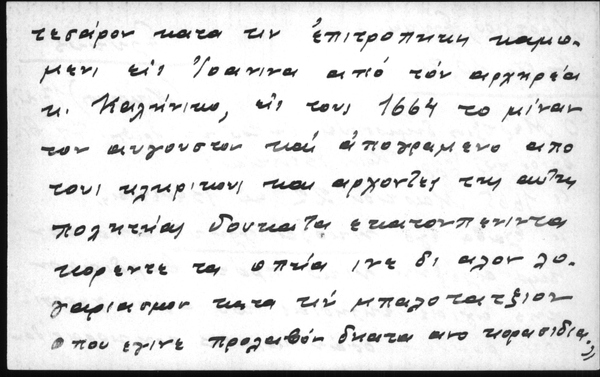 τεσάρον κατα τιν ἐπιτροπικη καμο-
μενι εἰς Ἰοανινα από τόν αρχηρέα
κ. Καλήνικο, εἰς τους 1664 το μίναν
τον αυγουστον καί ἀπογραμενο απο
τους κληρικους και αρχοντες της αὐτης
πολητείας δουκατα εκατονπενιντα
κορεντε τα οπηία ινε δι αλον λο-
γαριασμον κατα τιν μπαλοτατζιον
οπου εγινε προλαβόν δκατα ανο κορασιδια.»